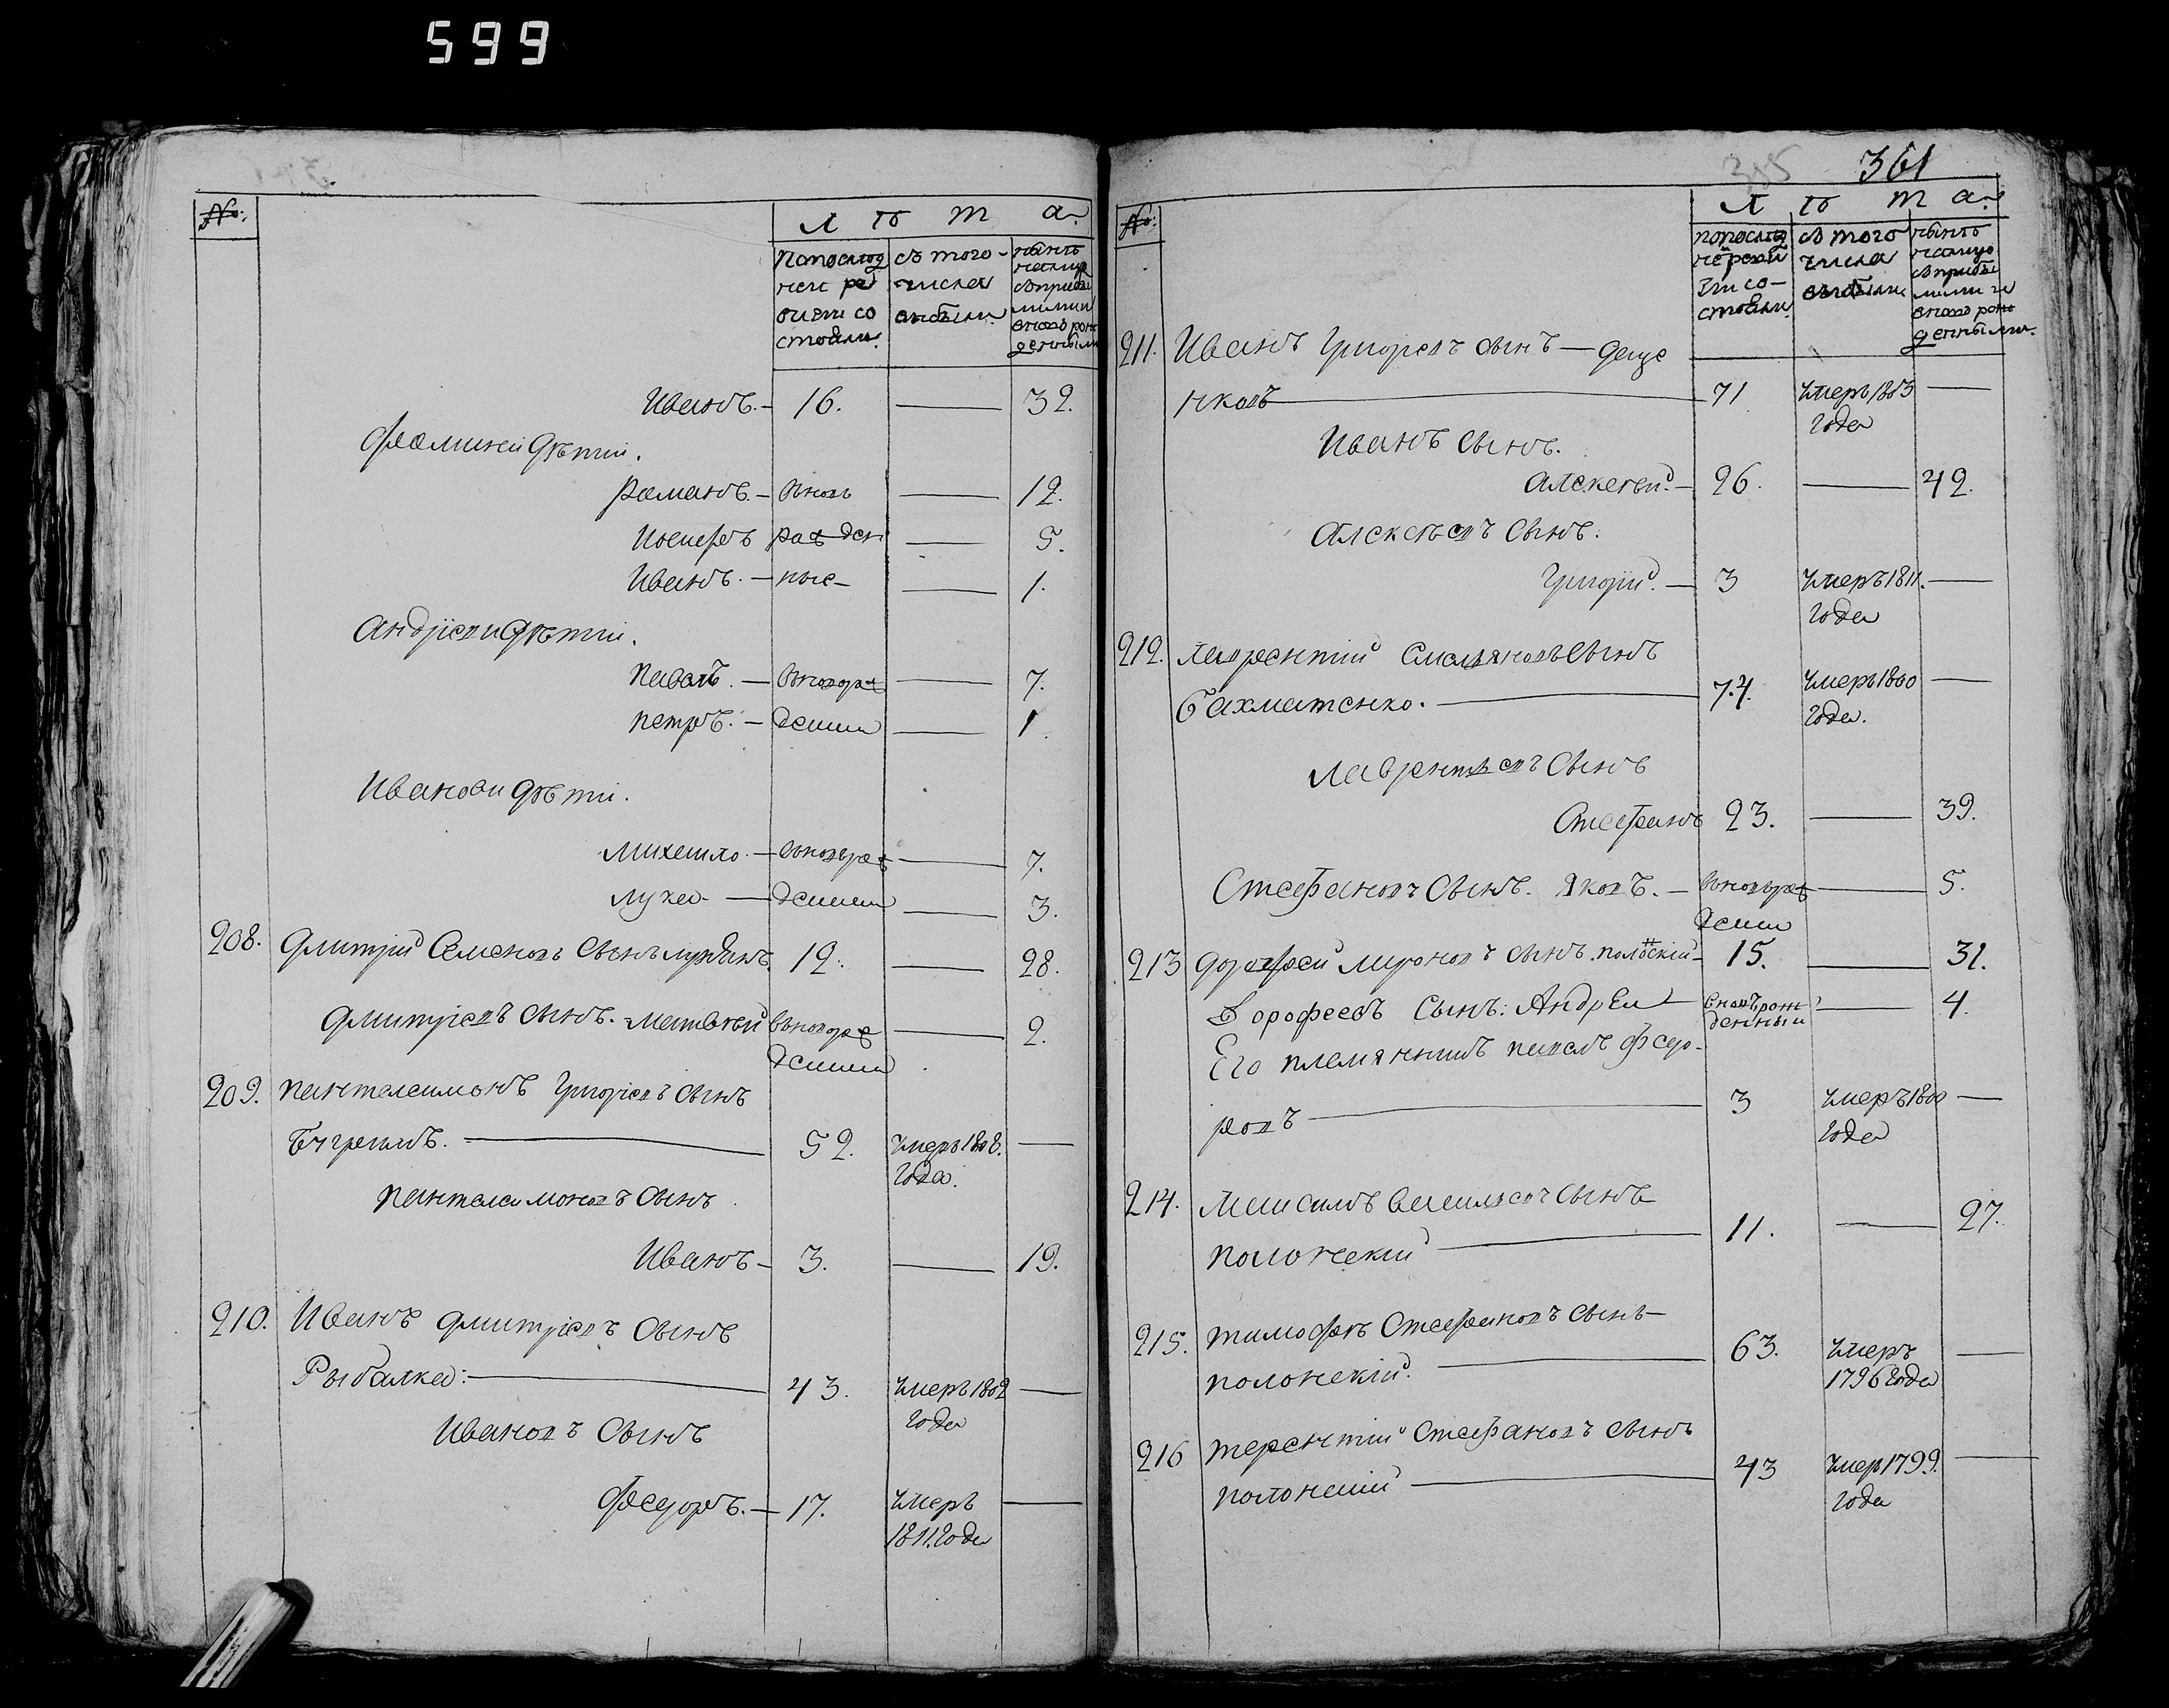 599
№:
Л ѣ т а.
По послѣд
ней ре
визіи со
стояли.
съ того
числа
выбыли.
нынѣ
на лицо
съ прибы
лыми и
вновь рож
денными
Иванъ. — 16. — 32.
Фомины дѣти.
Романъ. — вновь — 12.
Іосифъ рожден — 5.
Иванъ. — ные — 1.
Андріеви дѣти.
Павелъ. — вновь рож — 7.
Петръ. — денни — 1.
Иванови дѣти.
Михаило. — вновь рож — 7.
Лука — денни — 3.
208. Дмитрій Семеновъ сынъ 12. — 28.
Дмитріевъ сынъ. Матвѣй вновь рож — 2.
денни
209. Пантелеимонъ Григоріевъ сынъ
52. умеръ 1808. —
года.
Пантелеимоновъ сынъ
Иванъ — 3. — 19.
210. Иванъ Дмитріевъ сынъ
Рыбалка: — 43. умеръ 1802 —
года
Ивановъ сынъ
Федоръ. — 17. умеръ —
1811. года
361
№:
Л ѣ т а.
по послѣд
ней реви
зіи со-
стояли.
съ того
числа
выбыли
нынѣ
на лицо
съ прибы
лыми и
вновь рож
денными.
211. Иванъ Григоріевъ сынъ — Деще
нковъ — 71 умеръ 1813 —
года
Ивановъ сынъ.
Алексѣй. — 26. — 42.
Алексѣевъ сынъ.
Григорій. — 3 умеръ 1811. —
года
212. Лаврентій Емельяновъ сынъ
Бахматенко. — 74. умеръ 1800 —
года.
Лаврентьевъ сынъ
Стефанъ 23. — 39.
Стефановъ сынъ. Яковъ. — вновь рож — 5.
денни
213 Дорофей Мироновъ сынъ. Полонскій — 15. — 31.
Дорофеевъ сынъ: Андрей — вновь рож — 4.
денный
Его племянникъ Павелъ Федо-
ровъ — 3 умеръ 1800 —
года
214. Максимъ Васильевъ сынъ
Полонскій — 11. — 27.
215. Тимофѣй Стефановъ сынъ —
Полонскій. — 63. умеръ —
1796 года
216 Терентій Стефановъ сынъ
Полонскій — 43 умер 1799. —
года